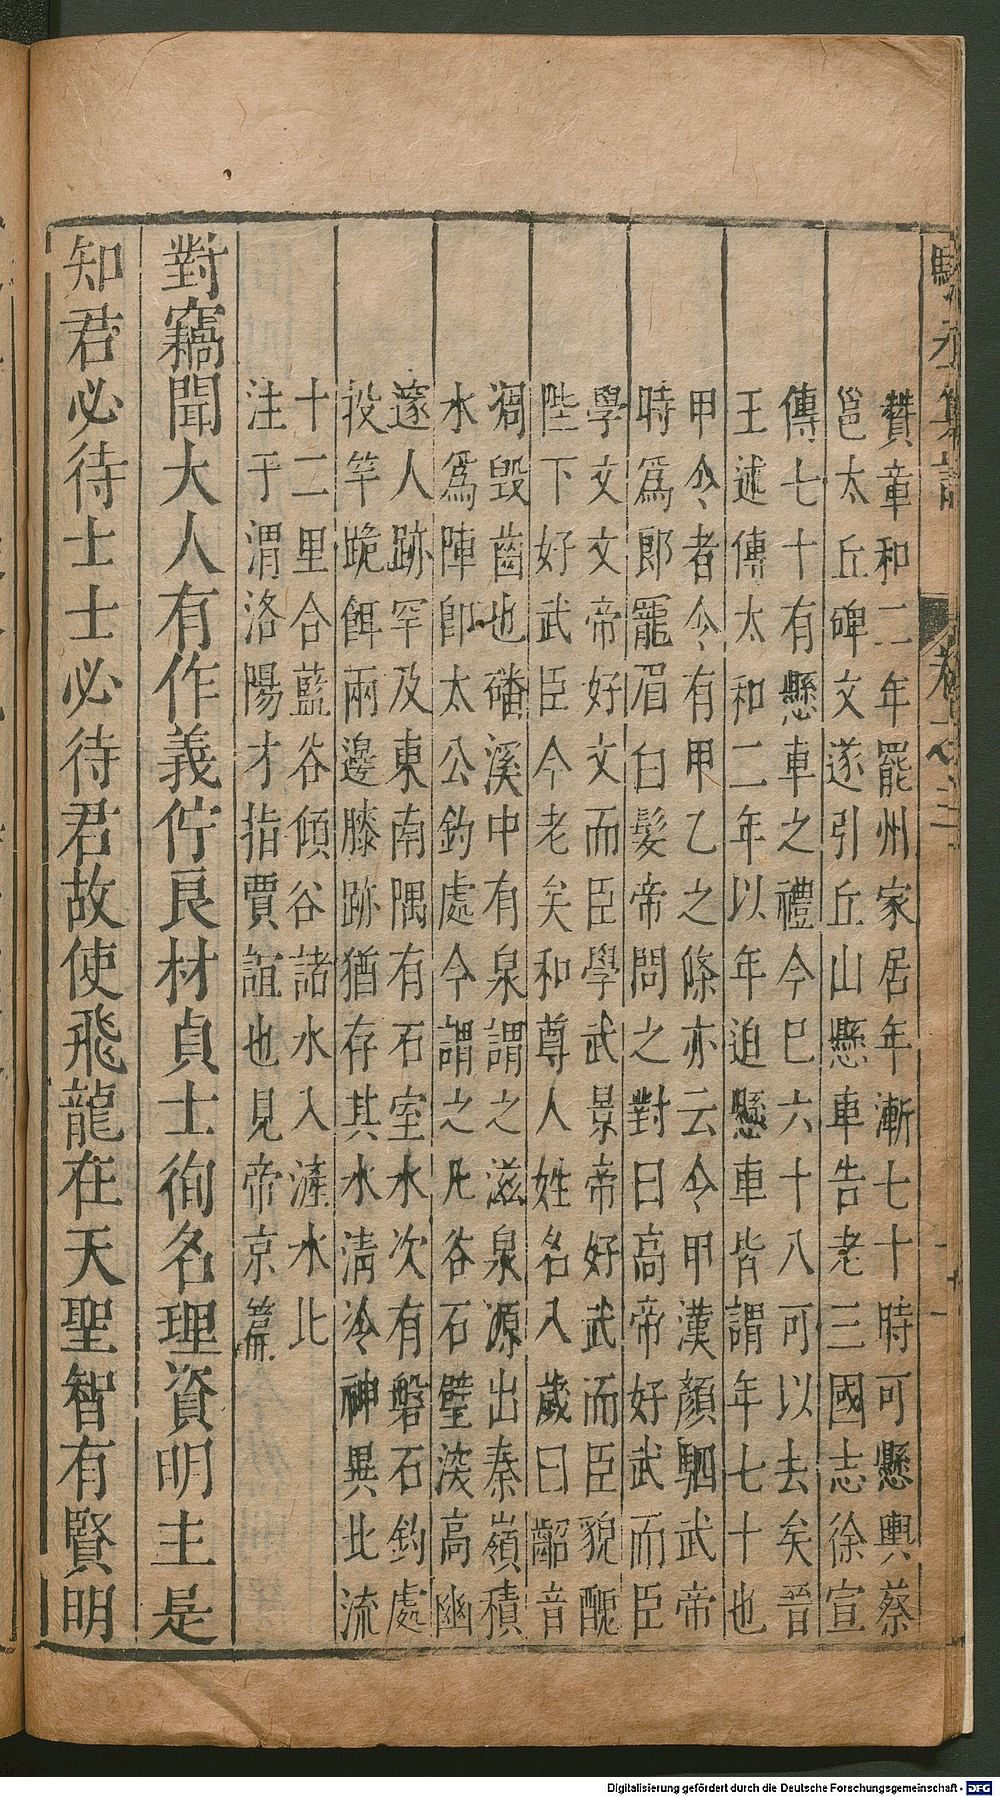 贊章和二年罷州家居年漸七十時可懸輿蔡
邕太丘碑文遂引丘山懸車告老三國志徐宣
傳七十有懸車之禮今巳六十八可以去矣晉
王述傳太和二年以年迫懸車皆謂年七十也
甲令者令有甲乙之條亦云令甲漢顏駟武帝
時爲郎龐眉白髮帝問之對曰高帝好武而臣
學文文帝好文而臣學武景帝好武而臣貌醜
陛下好武臣今老矣和尊人姓名入歲曰齠音
凋毀齒也磻溪中有泉謂之滋泉源出秦嶺積
水爲陣卽太公釣處今謂之凡谷石壁深高幽
邃人跡罕及東南隅有石室水次有磐石釣處
投竿跪餌兩邊膝跡猶存其水清冷神異北流
十二里合藍谷傾谷諸水入滻水北
注于渭洛陽才指賈誼也見帝京篇
對竊聞大人有作義佇良材貞士徇名理資明主是
知君必待士士必待君故使飛龍在天聖智有賢明
Digitalisierung gefördert durch die Deutsche Forschungsgemeinschaft - DFG